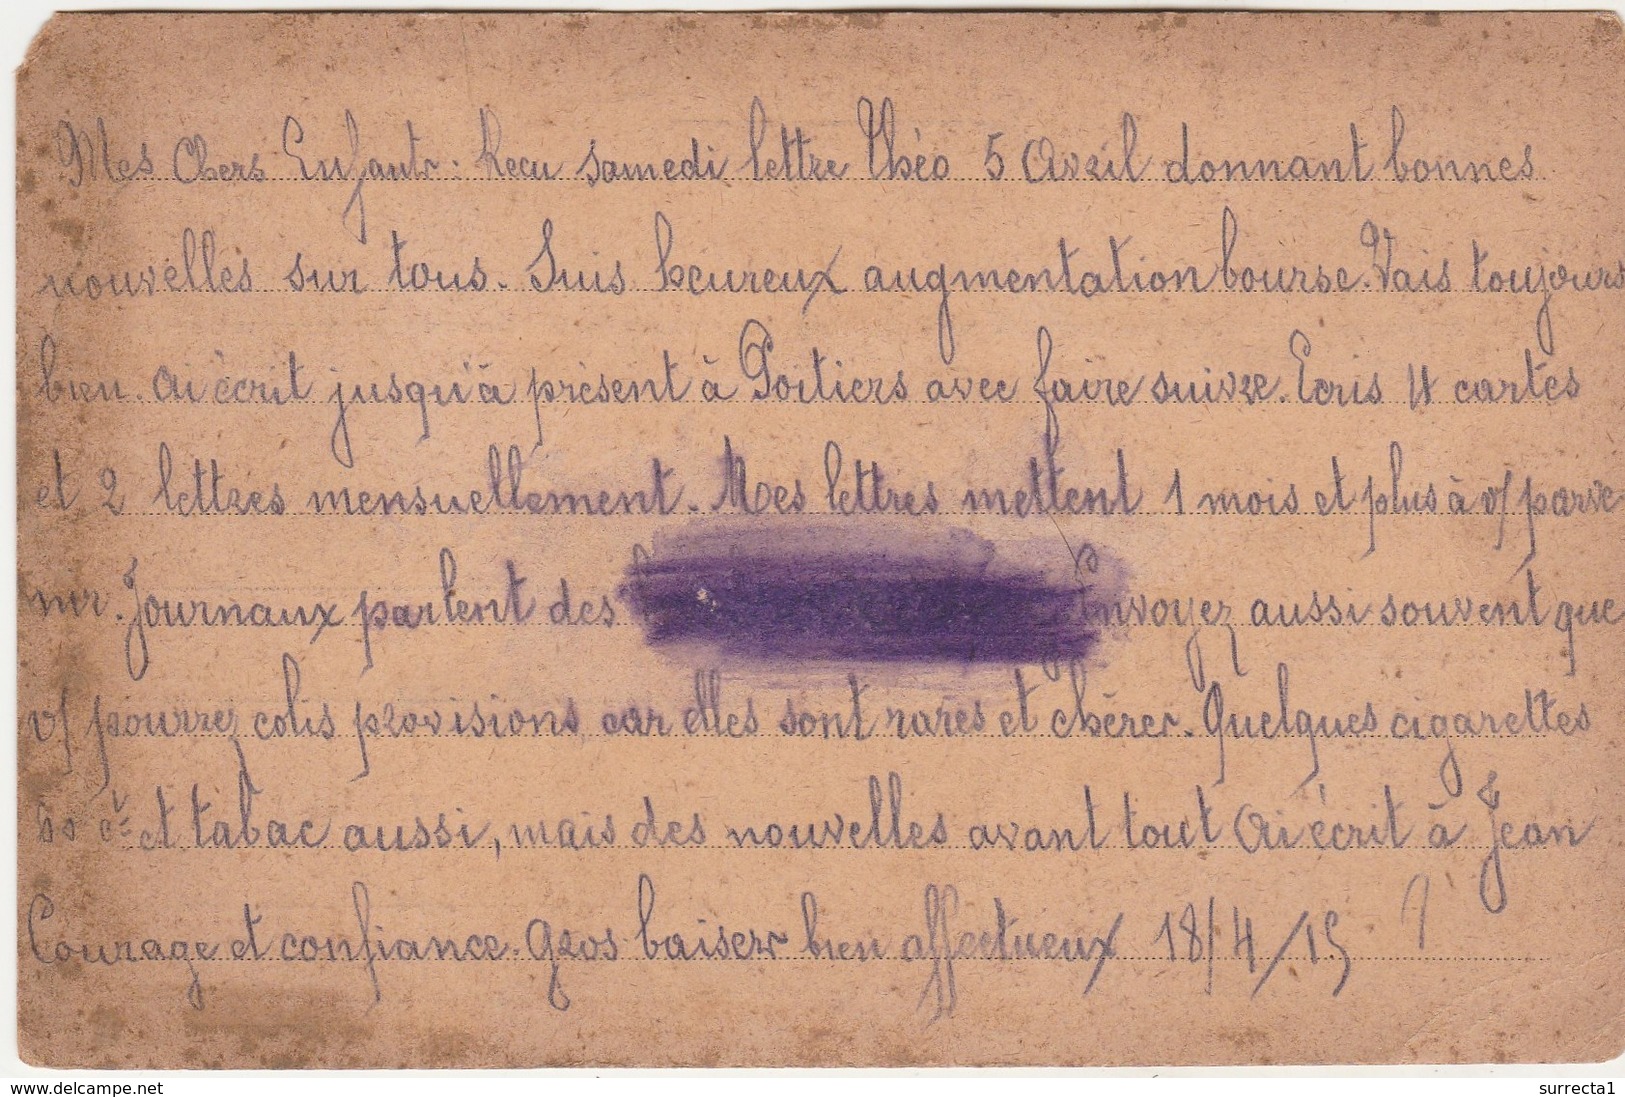 Mes Chers Enfants : Recu samedi lettre Théo 5 Avril donnant bonnes
nouvelles sur tous. Suis heureux augmentation bourse. Vais toujours
bien. Ai écrit jusqu'à présent à Poitiers avec faire suivre. Ecris 4 cartes
et 2 lettres mensuellement. Mes lettres mettent 1 mois et plus à v/ parve
nir. Journaux parlent des Envoyez aussi souvent que
v/ pourrez colis provisions, car elles sont rares et chères. Quelques cigarettes
et tabac aussi, mais des nouvelles avant tout Ai écrit à Jean
Courage et confiance. Gros baisers bien affectueux 18/4/15
www.delcampe.net
surrecta1